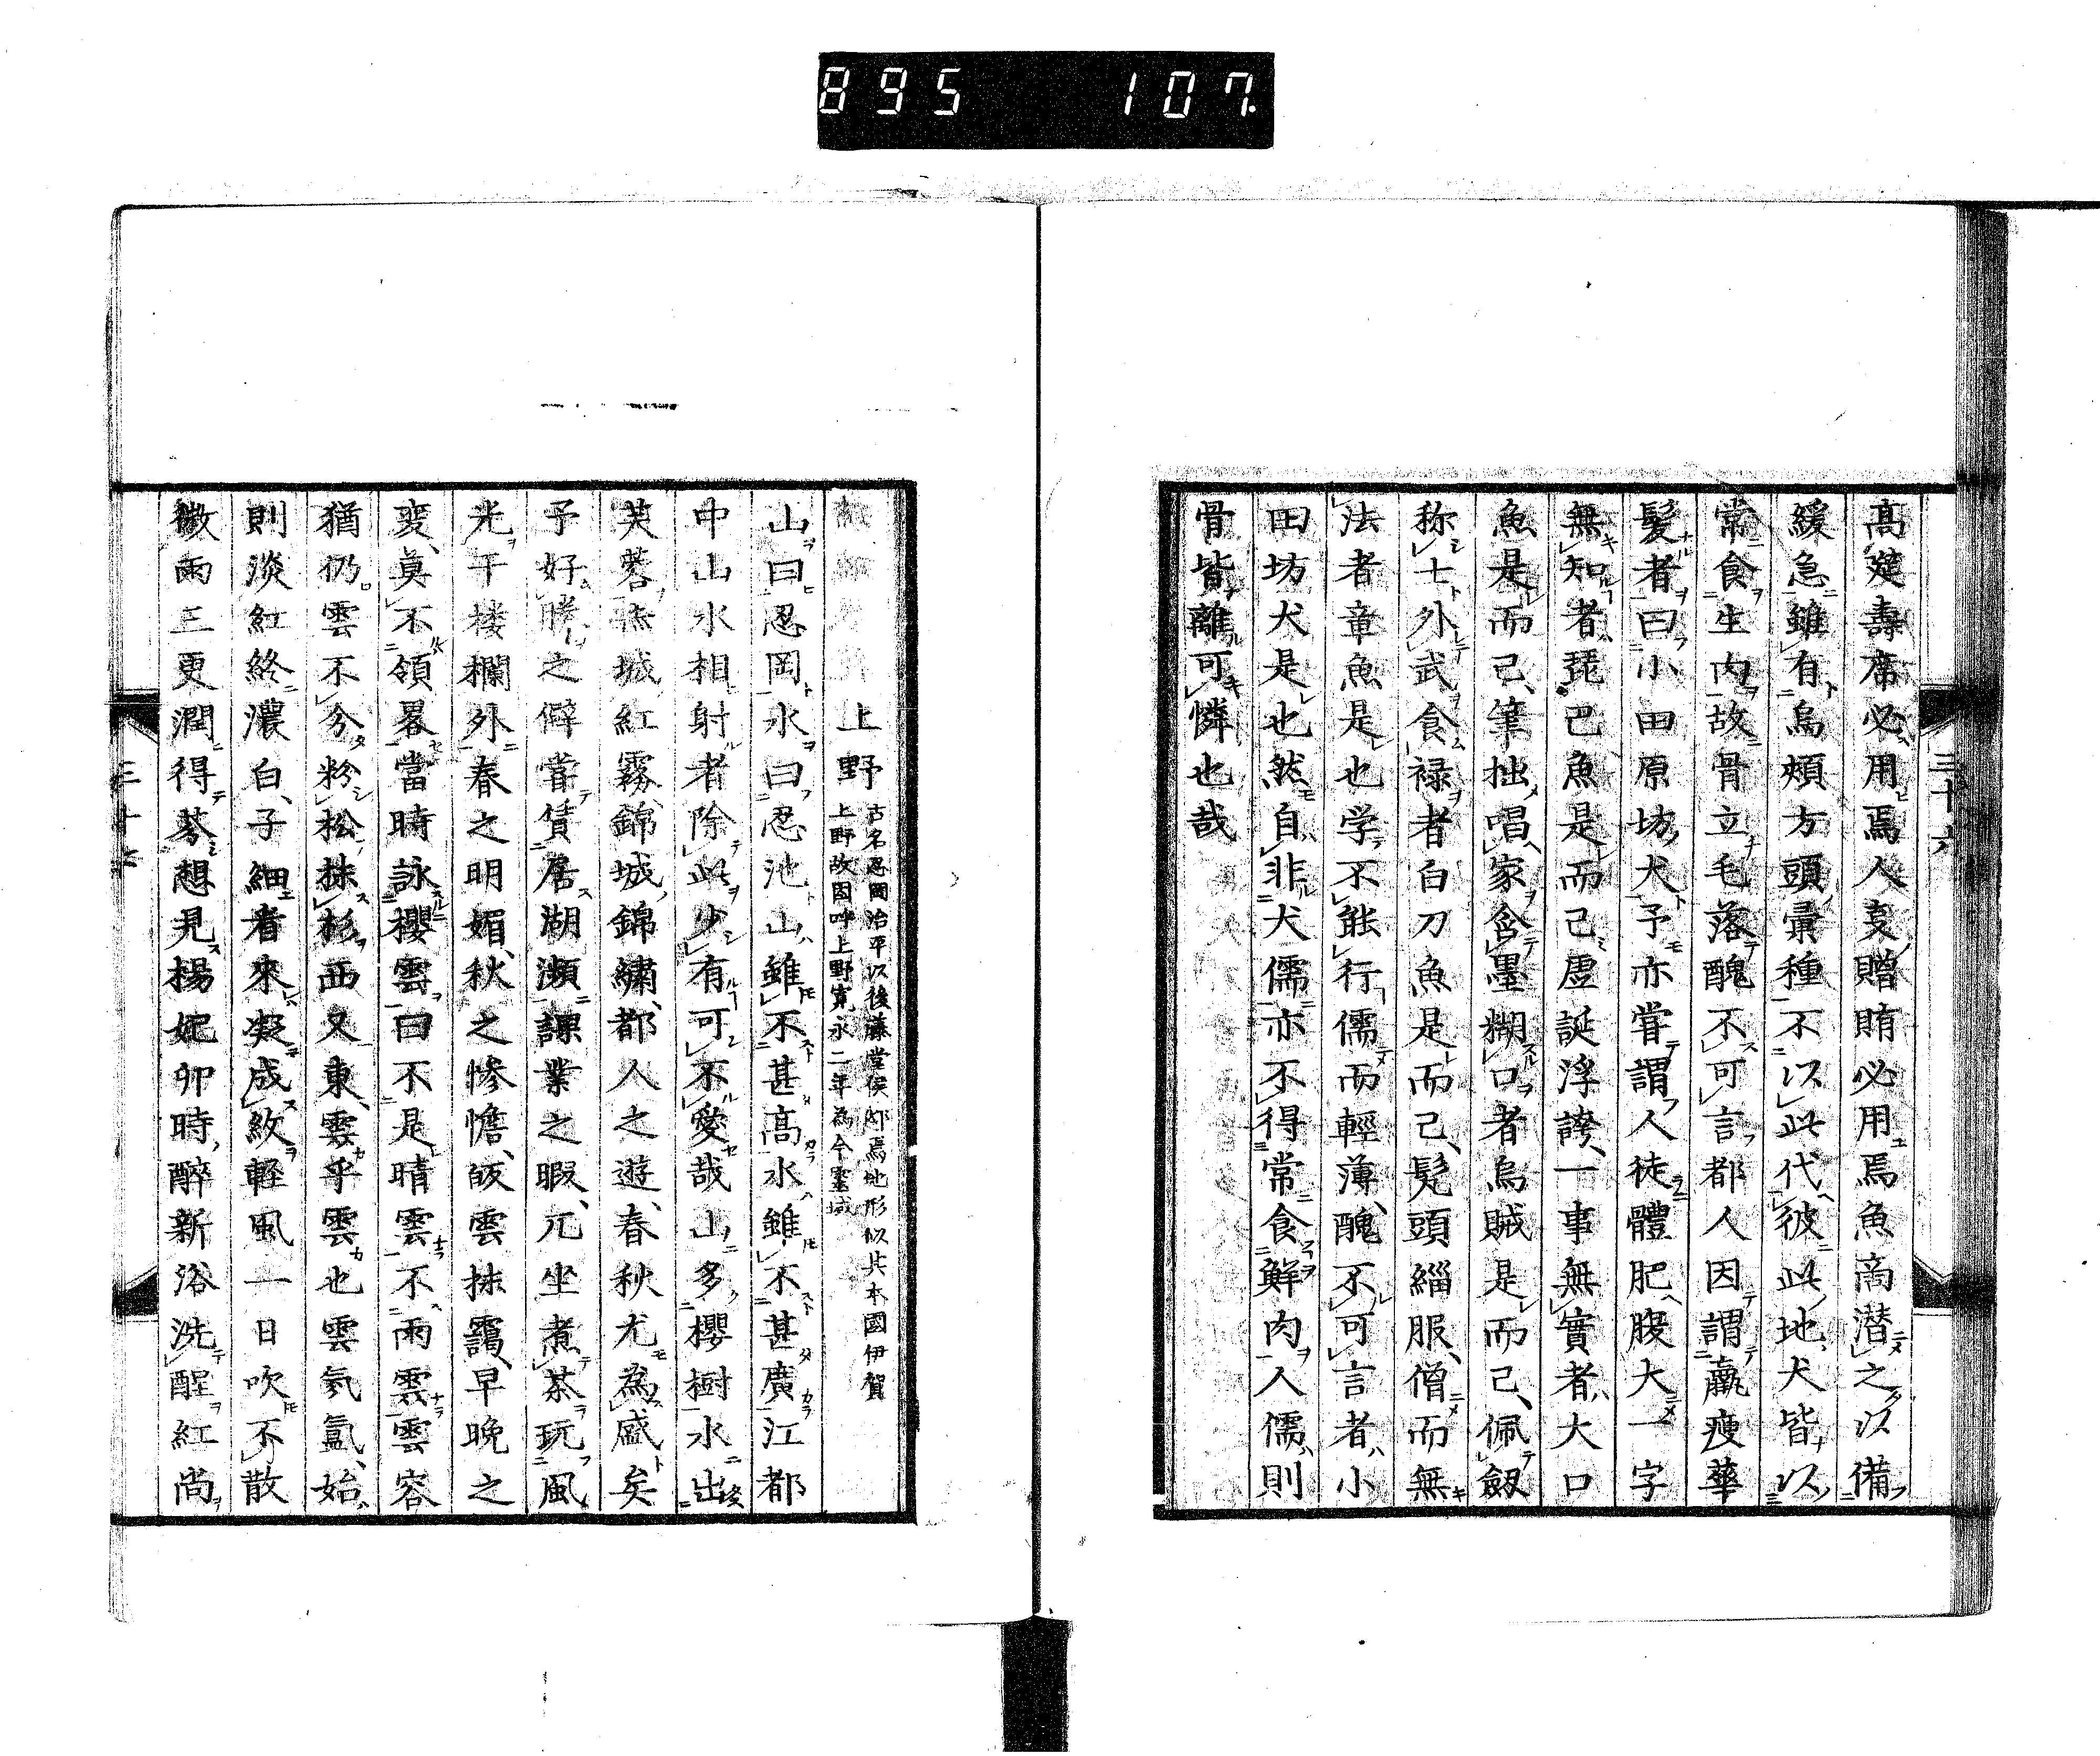 895 107.
三十六
高筵壽席必用焉人支贈賄必用焉魚商潜之以備
緩急雖有烏頰方頭彙種不以此代彼此地犬皆以
常食生肉故骨立毛落醜不可言都人因謂羸瘦華
髮者曰小田原坊犬予亦嘗謂人徒體肥腹大一字
無知者琵巴魚是而已虚誕浮誇一事無實者大口
魚是而已筆拙唱家含墨糊口者烏賊是而已佩劔
称士外武食禄者白刀魚是而已髡頭緇服僧而無
法者章魚是也学不能行儒而輕薄醜不可言者小
田坊犬是也然自非犬儒亦不得常食鮮肉人儒則
骨皆離可憐也哉
上野
古名忍岡治平以後藤堂侯邸焉地形似其本國伊賀
上野故因呼上野寛永二年為今靈域
山曰忍岡水曰忍池山雖不甚高水雖不甚廣江都
中山水相射者除此少有可不愛哉山多櫻樹水出
芙蓉城紅霧錦城錦繍都人之遊春秋尤為盛矣
予好勝之僻嘗賃居湖瀕課業之暇兀坐煮茶玩風
光干楼欄外春之明媚秋之惨憺皈雲抹靄早晚之
変真不領畧當時詠櫻雲曰不是晴雲不雨雲雲容
猶仍雲不分粉松抹杉西又東雲乎雲也雲氣氳始
則淡紅終濃白子細看來凝成紋軽風一日吹不散
微雨三更潤得芬想見楊妃卯時醉新浴洗醒紅尚